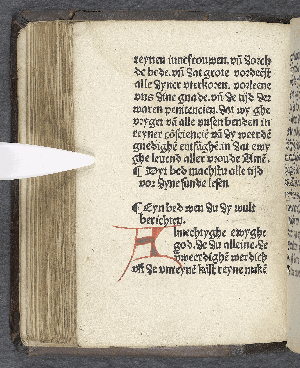 reynen iuncfrouwen. vn̄ dorch
de bede. vn̄ dat grote vordēst
alle dyner vterkoren. vorleene
vns dine gnade. vn̄ de tijd der
waren penitencien. dat wy ghe
vryget vā alle vnsen benden in
reyner cōsciencie vn̄ dy werdē
gnedighē entfāghē. in dat ewy
ghe leuend aller vroude Amē.
¶ Dyt bed machstu alle tijd
vor dyne sunde lesen
¶ Eyn bed wen du dy wult
berichten.
Almechtyghe ewyghe
god. de du alleine. de
vnweerdighē werdich
vn̄ de vnreynē kāst reyne makē